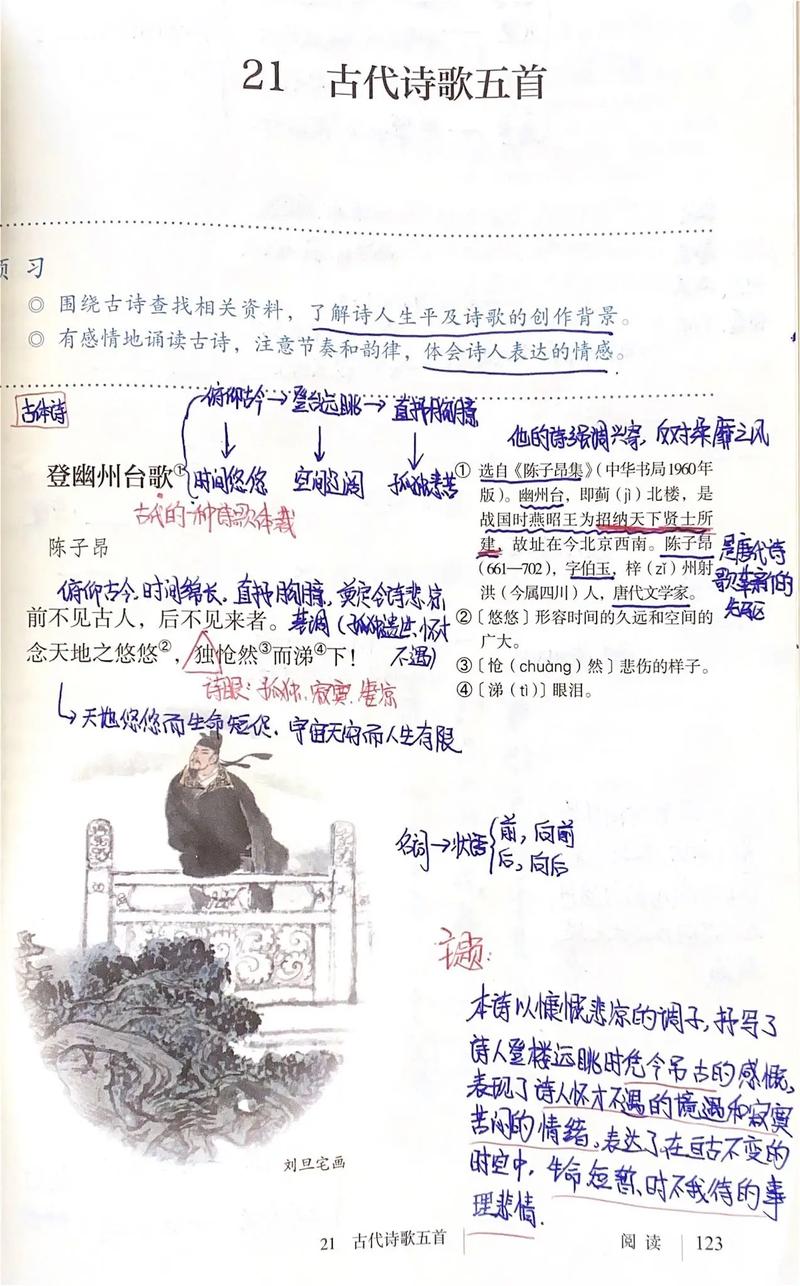 21 古代诗歌五首
预习
◎ 围绕古诗查找相关资料，了解诗人生平及诗歌的创作背景。
◎ 有感情地诵读古诗，注意节奏和韵律，体会诗人表达的情感。
古体诗
俯仰古今→登台远眺→直抒胸臆
时间悠悠 空间辽阔 孤独悲苦
登幽州台歌①
古代的一种诗歌体裁
陈子昂
俯仰古今，时间绵长，直抒胸臆，奠定全诗悲凉
前不见古人，后不见来者。
基调（孤独遗世、怀才
不遇）
念天地之悠悠②，独怆然③而涕④下！
诗眼：孤独、寂寞、悲凉
天地悠悠而生命短促，宇宙无穷而人生有限
他的诗强调兴寄，反对柔靡之风
① 选自《陈子昂集》（中华书局1960年
版）。幽州台，即蓟（jì）北楼，是
战国时燕昭王为招纳天下贤士所
建，故址在今北京西南。陈子昂
（661—702），字伯玉，梓（zǐ）州射
洪（今属四川）人，唐代文学家。
是唐代诗
歌革新的
先驱
②〔悠悠〕形容时间的久远和空间的
广大。
③〔怆（chuàng）然〕悲伤的样子。
④〔涕（tì）〕眼泪。
名词→状语
前，向前
后，向后
主题：
本诗以慷慨悲凉的调子，抒写了
诗人登楼远眺时凭今吊古的感慨，
表现了诗人怀才不遇的境遇和寂寞
苦闷的情绪，表达了在亘古不变的
时空中，生命短暂，时不我待的事
理悲情．
刘旦宅画
21 古代诗歌五首
阅读 123